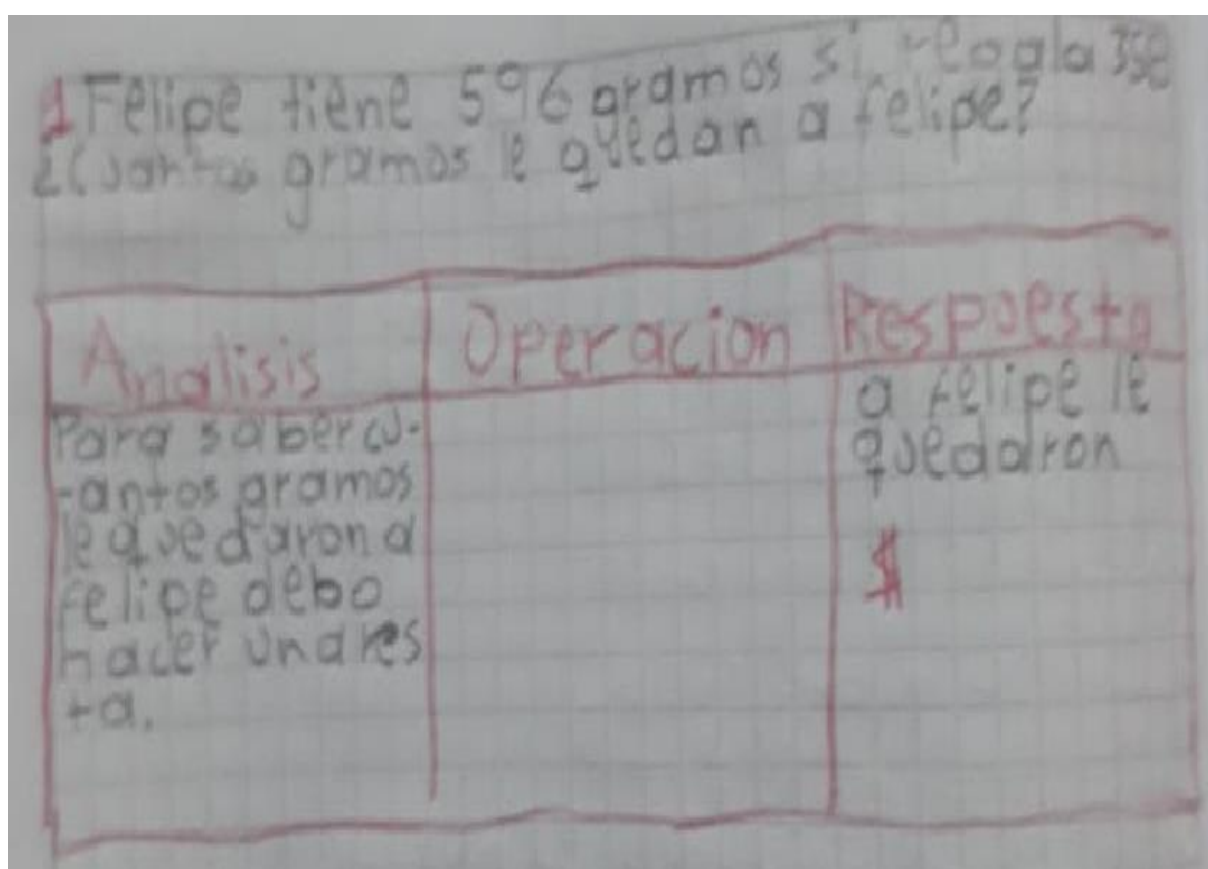 1 Felipe tiene 596 gramos si regala 358
¿Cuantos gramos le quedan a felipe?
Analisis
Operacion
Respuesta
Para saber cu-
-antos gramos
le quedaron a
felipe debo
hacer una res
ta.
a felipe le
quedaron
$